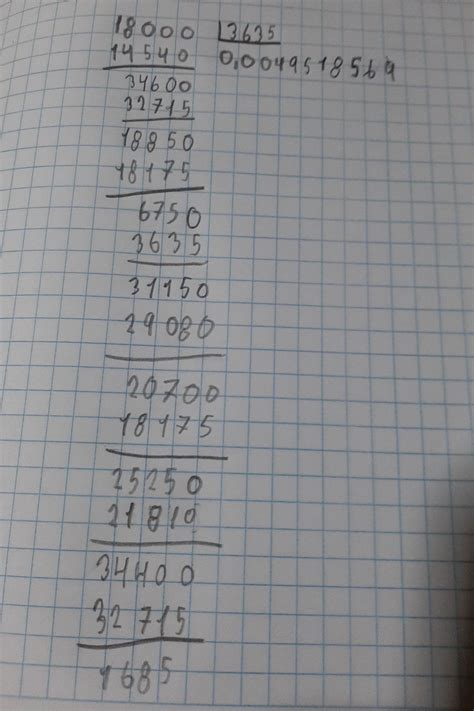 18000 3635
14540 0,0049518569
34600
32715
18850
18175
6750
3635
31150
29080
20700
18175
25250
21810
34400
32715
1685